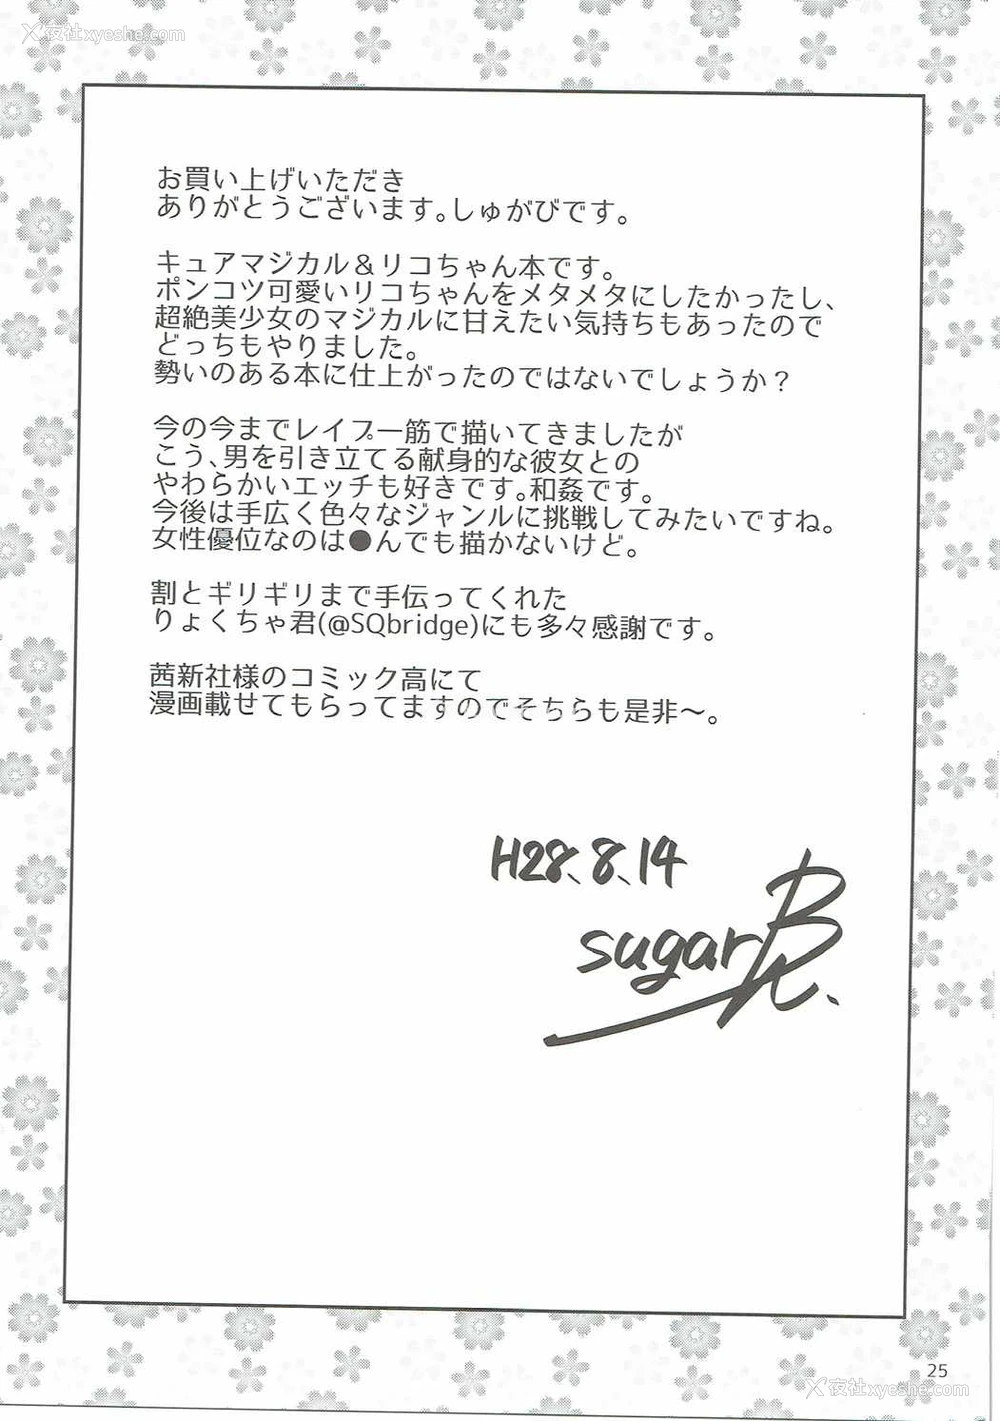 夜社xyeshe.com
お買い上げいただき
ありがとうございます。しゅがびです。
キュアマジカル＆リコちゃん本です。
ポンコツ可愛いリコちゃんをメタメタにしたかったし、
超絶美少女のマジカルに甘えたい気持ちもあったので
どっちもやりました。
勢いのある本に仕上がったのではないでしょうか？
今の今までレイプ一筋で描いてきましたが
こう、男を引き立てる献身的な彼女との
やわらかいエッチも好きです。和姦です。
今後は手広く色々なジャンルに挑戦してみたいですね。
女性優位なのは●んでも描かないけど。
割とギリギリまで手伝ってくれた
りょくちゃ君(@SQbridge)にも多々感謝です。
茜新社様のコミック高にて
漫画載せてもらってますのでそちらも是非～。
H28.8.14
sugarBt.
25
夜社xyeshe.com